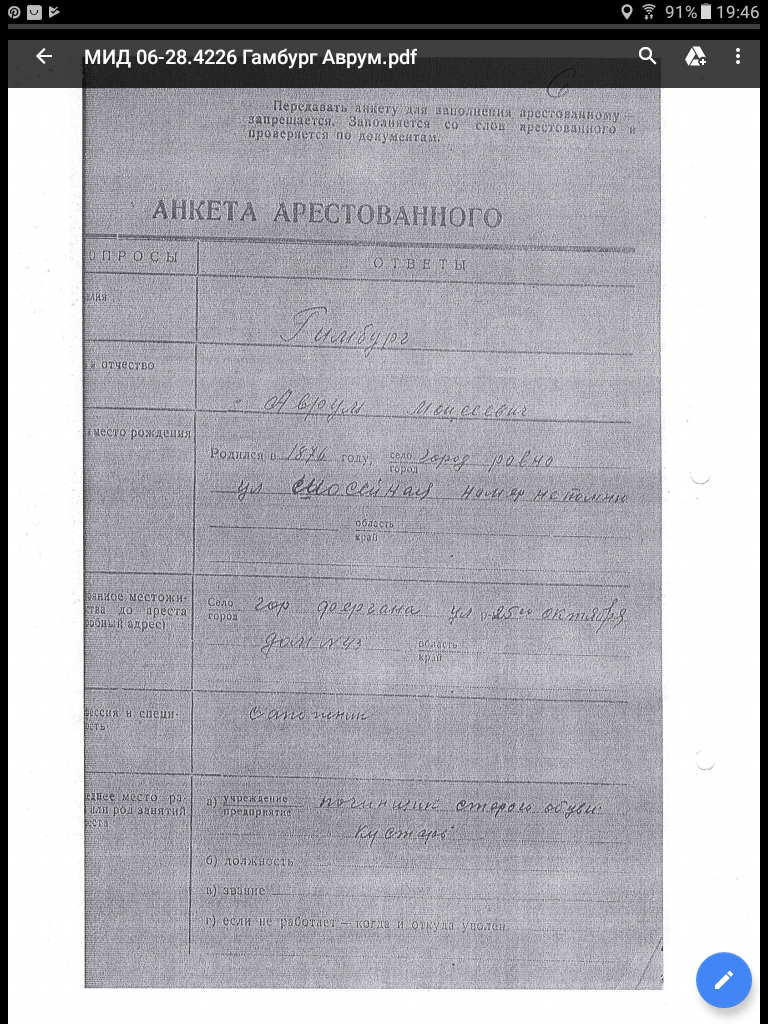 91% 19:46
МИД 06-28.4226 Гамбург Аврум.pdf
6
Передавать анкету для заполнения арестованному —
запрещается. Заполняется со слов арестованного и
проверяется по документам.
АНКЕТА АРЕСТОВАННОГО
ОПРОСЫ ОТВЕТЫ
Гимбург
отчество
Аврум Моисеевич
место рождения
Родился в 1876 году, село город город ровно
ул Шоссейная номер не помню
область
край
местожи-
ства до ареста
адрес)
Село город гор фергана ул 25го октября
дом №43 область край
ессия и специ-
сапожник
место ра-
или род занятий
а) учреждение предприятие починщик старого обуви
кустарь
б) должность
в) звание
г) если не работает — когда и откуда уволен